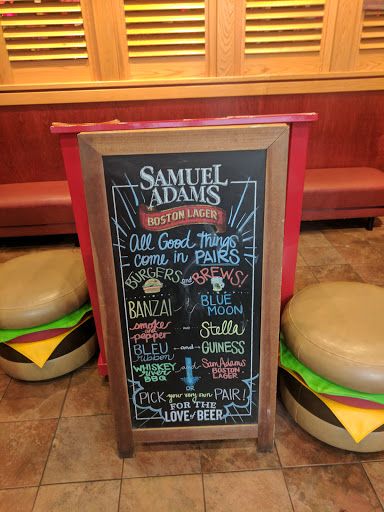 SAMUEL
ADAMS
BOSTON LAGER
All Good things
come in PAIRS
BURGERS and BREWS!
BANZAI BLUE MOON
smoke and pepper Stella
BLEU ribbon GUINESS
WHISKEY river BBQ and Sam Adams BOSTON LAGER
OR
PICK your very own PAIR!
FOR THE
LOVE of BEER